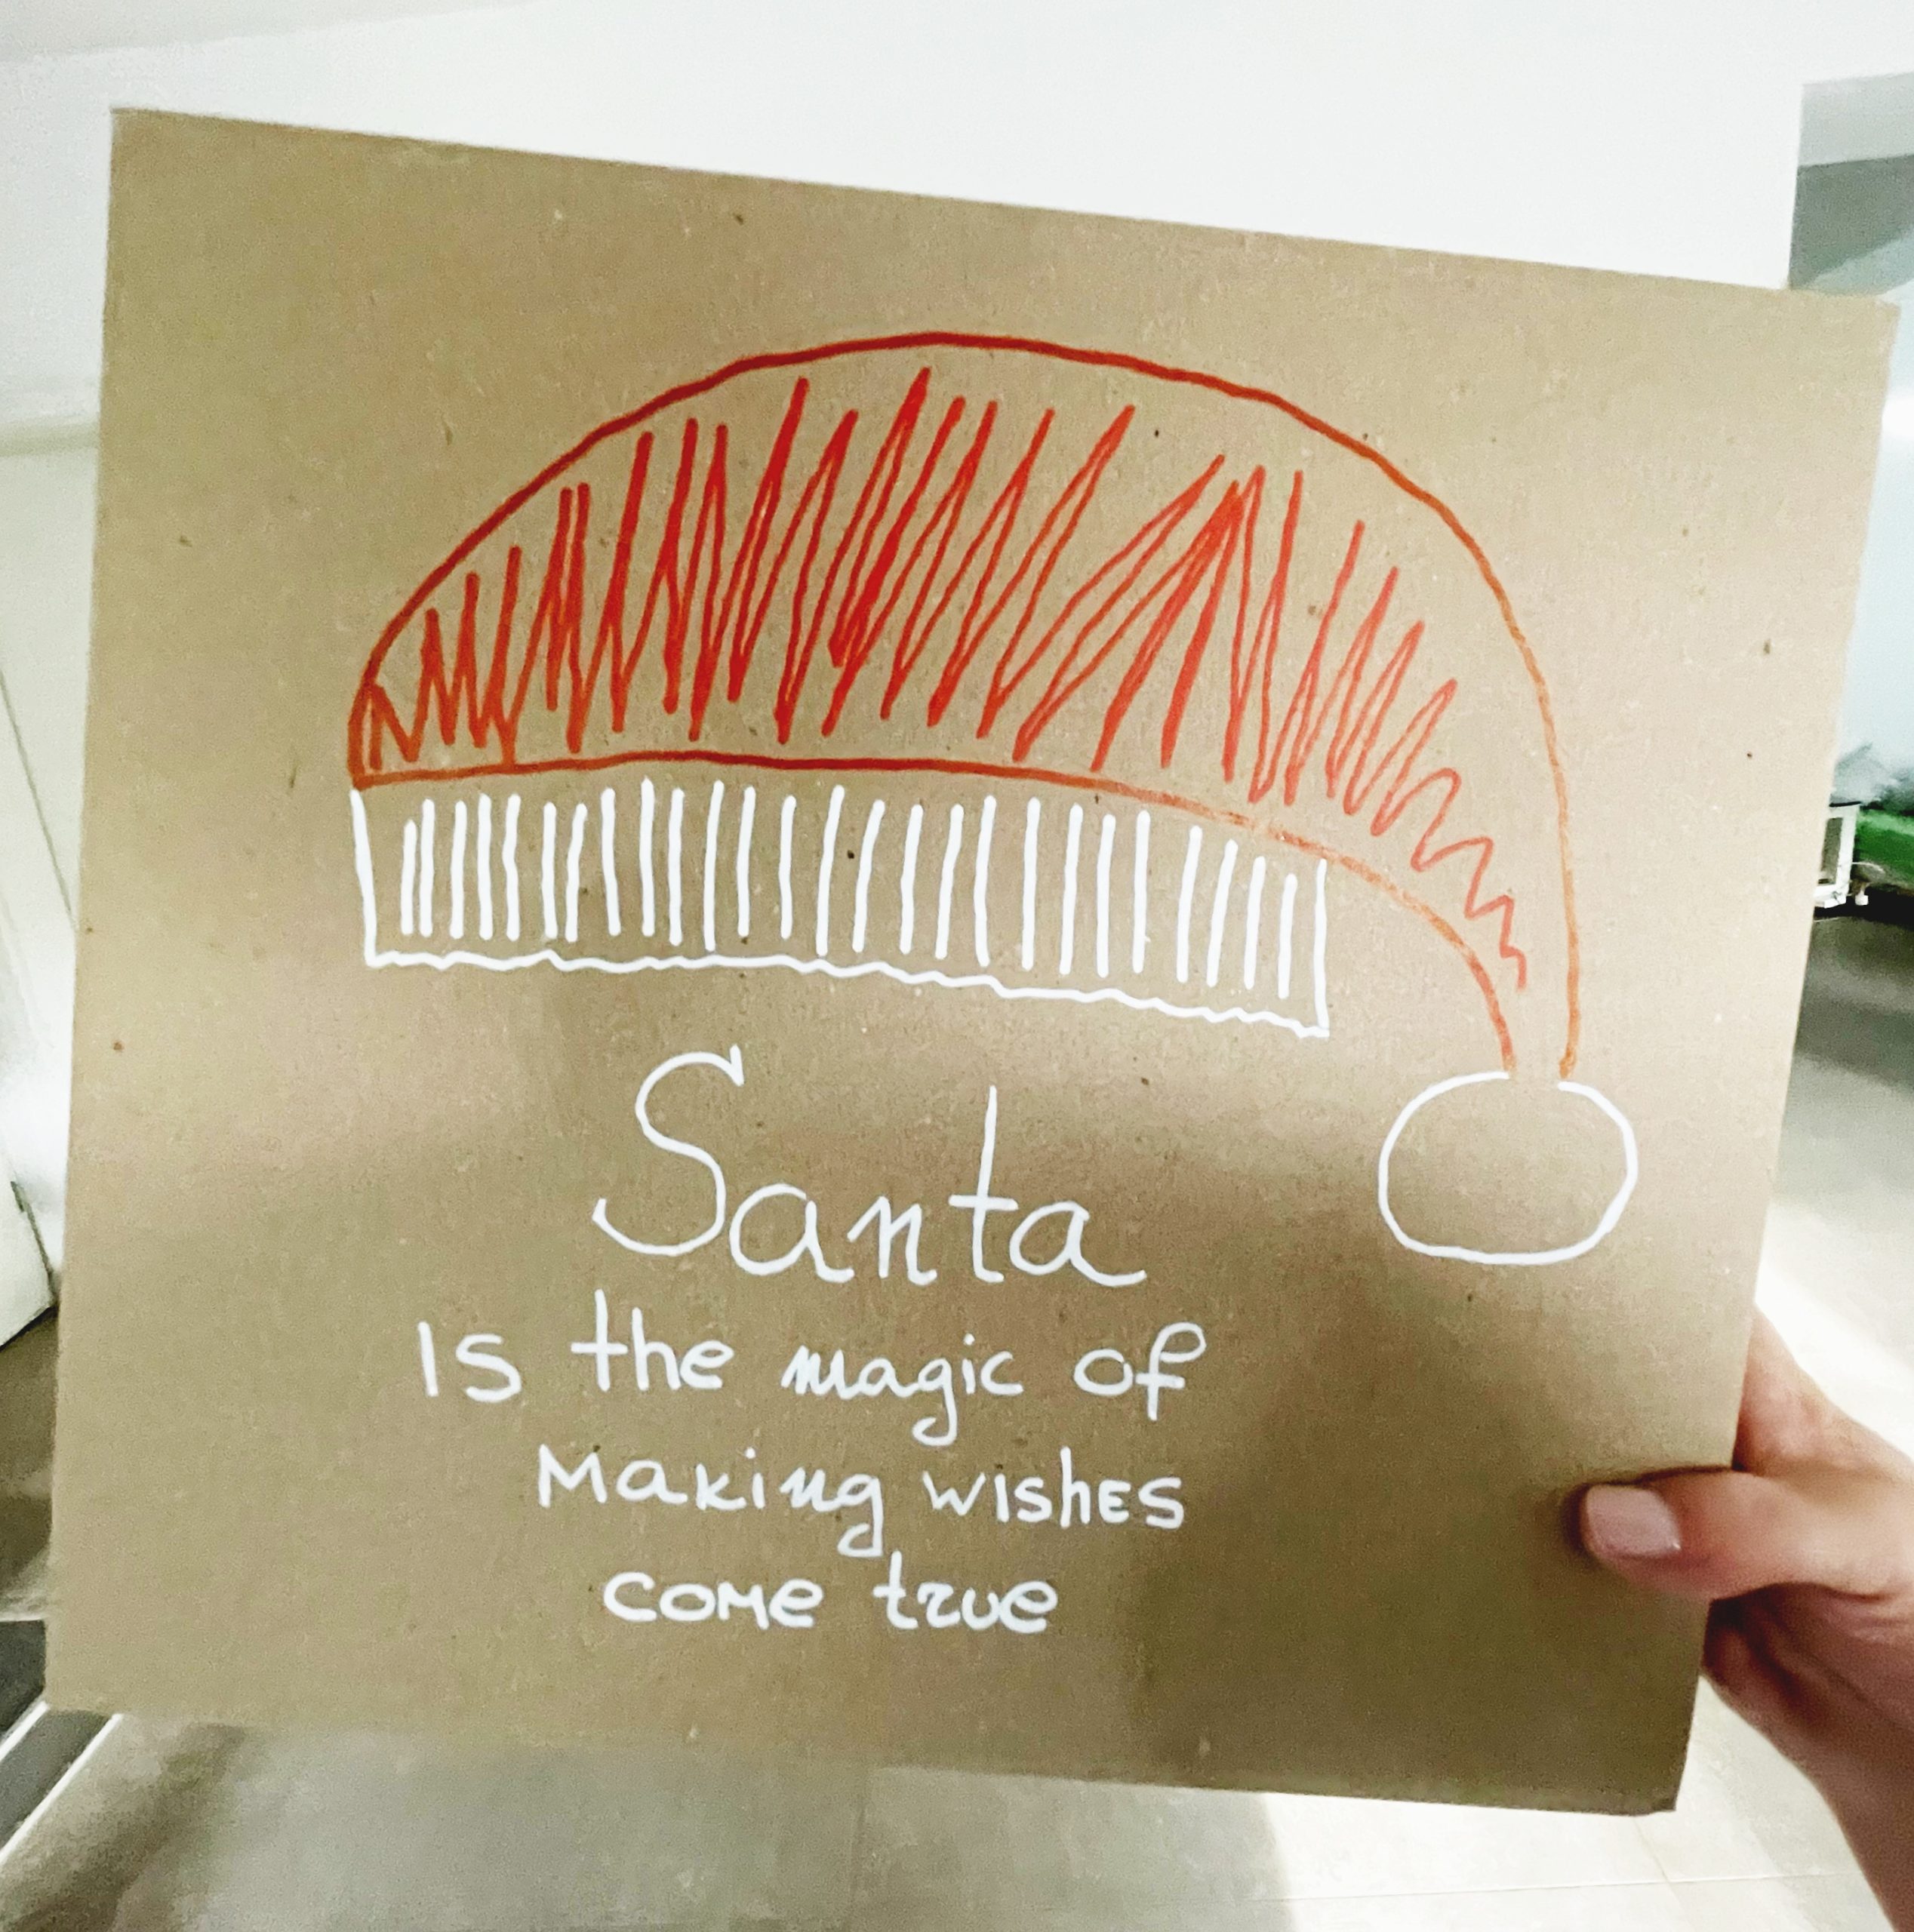 Santa
Is the magic of
Making wishes
come true